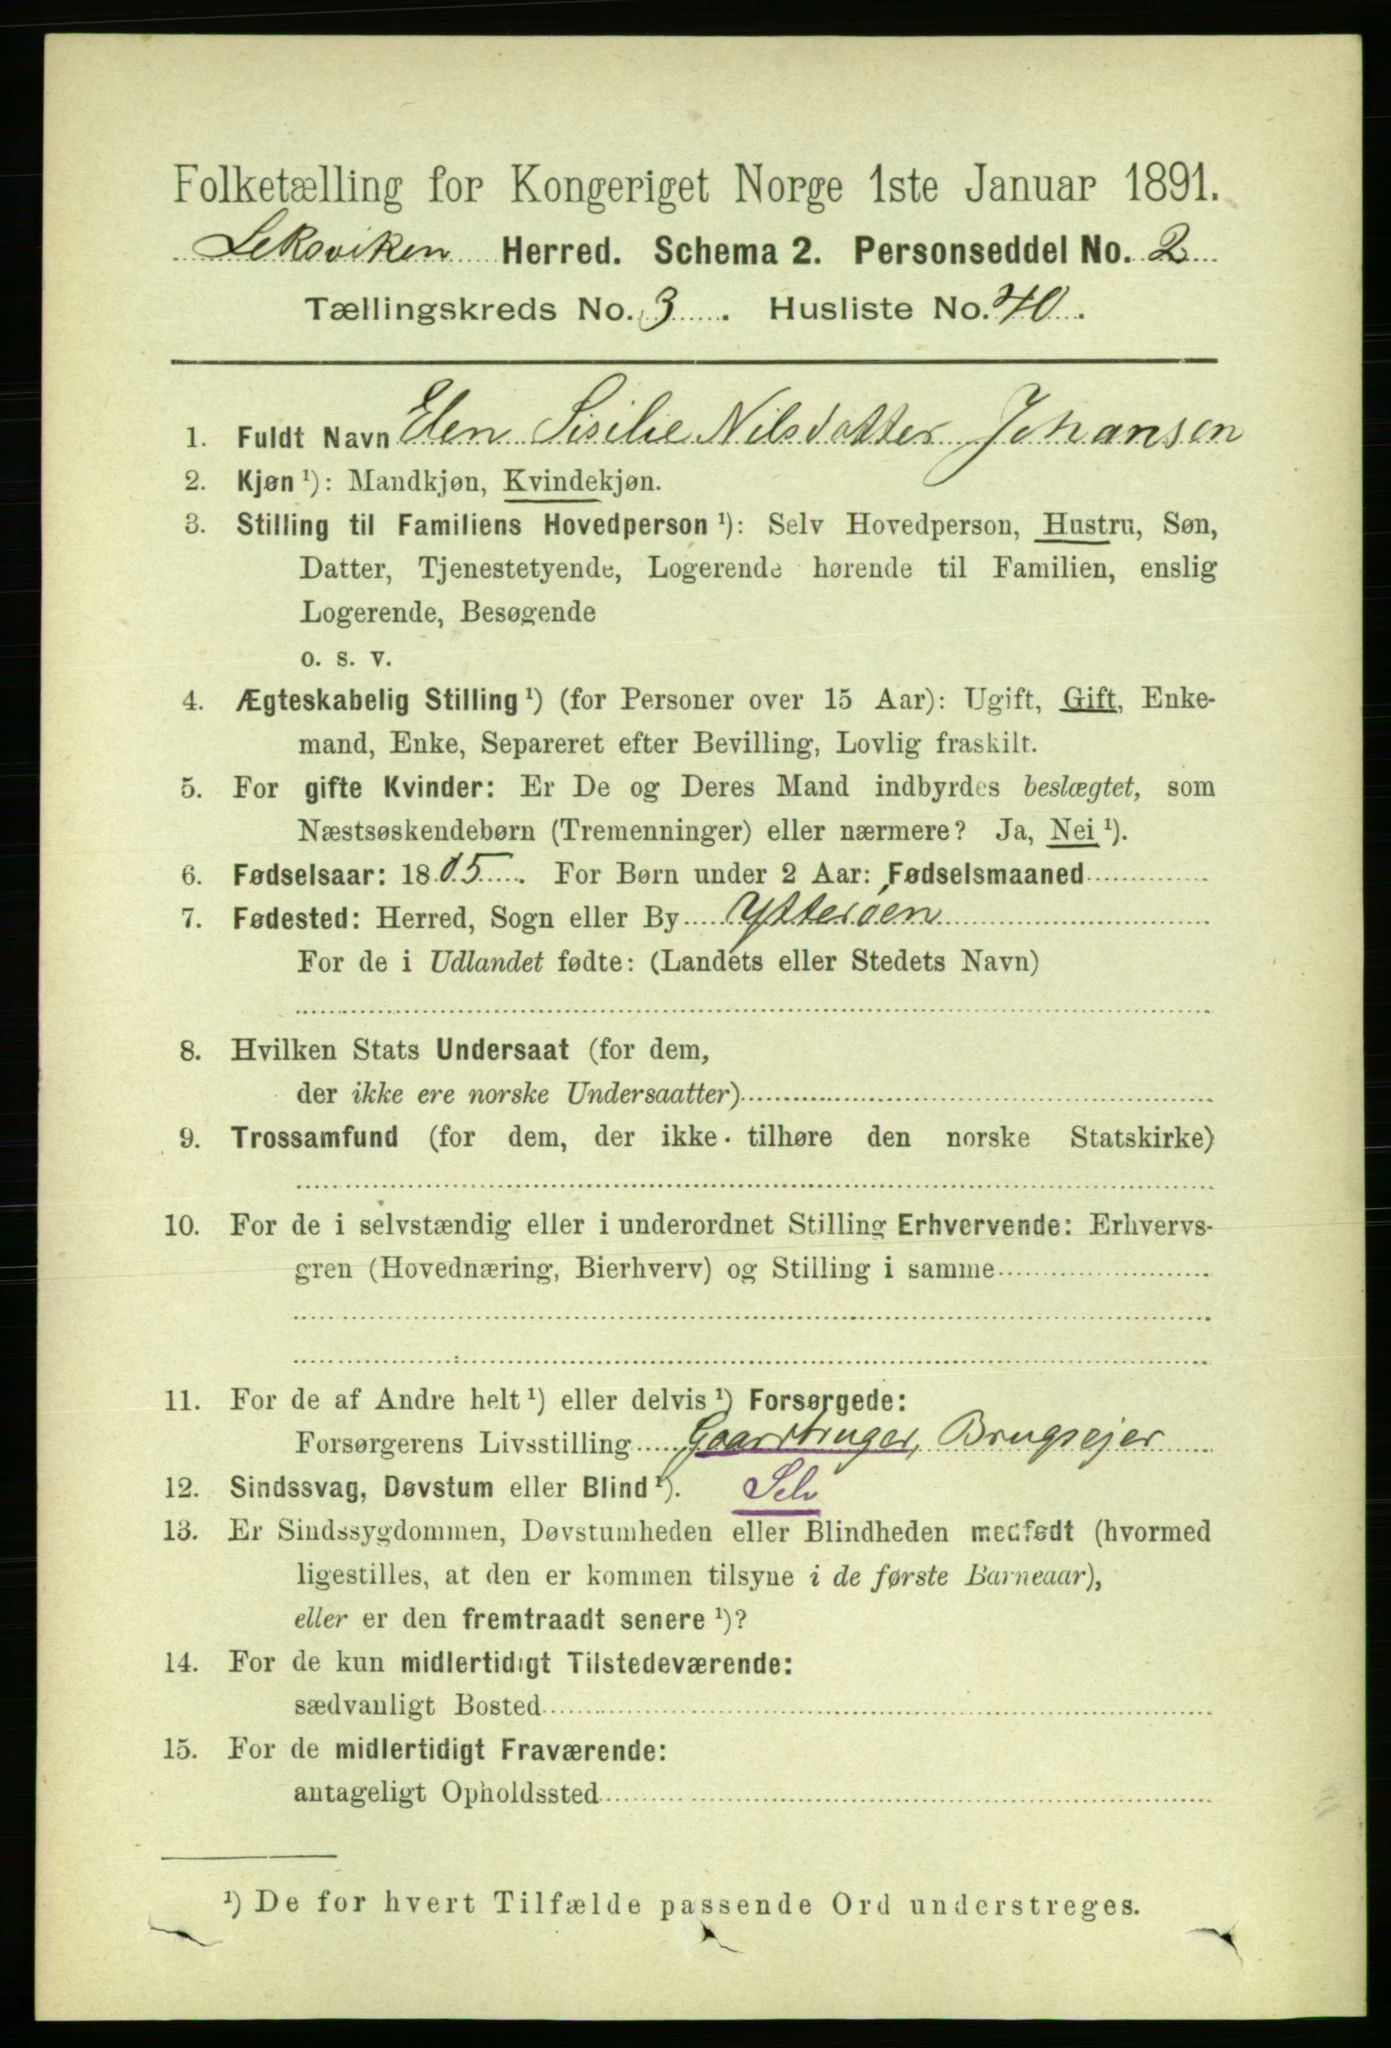 Folketælling for Kongeriget Norge 1ste Januar 1891.
Leksviken Herred. Schema 2. Personseddel No. 2
Tællingskreds No. 3. Husliste No. 40.
1. Fuldt Navn Elen Sisilie Nilsdatter Johansen
2. Kjøn ¹): Mandkjøn, Kvindekjøn.
3. Stilling til Familiens Hovedperson ¹): Selv Hovedperson, Hustru, Søn,
Datter, Tjenestetyende, Logerende hørende til Familien, enslig
Logerende, Besøgende
o. s. v.
4. Ægteskabelig Stilling ¹) (for Personer over 15 Aar): Ugift, Gift, Enke-
mand, Enke, Separeret efter Bevilling, Lovlig fraskilt.
5. For gifte Kvinder: Er De og Deres Mand indbyrdes beslægtet, som
Næstsøskendebørn (Tremenninger) eller nærmere? Ja, Nei ¹).
6. Fødselsaar: 1805. For Børn under 2 Aar: Fødselsmaaned
7. Fødested: Herred, Sogn eller By Ytterøen
For de i Udlandet fødte: (Landets eller Stedets Navn)
8. Hvilken Stats Undersaat (for dem,
der ikke ere norske Undersaatter)
9. Trossamfund (for dem, der ikke tilhøre den norske Statskirke)
10. For de i selvstændig eller i underordnet Stilling Erhvervende: Erhvervs-
gren (Hovednæring, Bierhverv) og Stilling i samme
11. For de af Andre helt ¹) eller delvis ¹) Forsørgede:
Forsørgerens Livsstilling Gaardbruger, Brugsejer
12. Sindssvag, Døvstum eller Blind ¹). Selv
13. Er Sindssygdommen, Døvstumheden eller Blindheden medfødt (hvormed
ligestilles, at den er kommen tilsyne i de første Barneaar),
eller er den fremtraadt senere ¹)?
14. For de kun midlertidigt Tilstedeværende:
sædvanligt Bosted
15. For de midlertidigt Fraværende:
antageligt Opholdssted
¹) De for hvert Tilfælde passende Ord understreges.